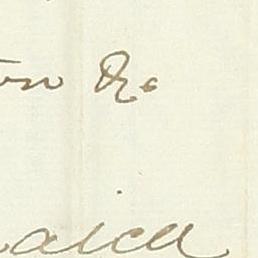 on &c
aica